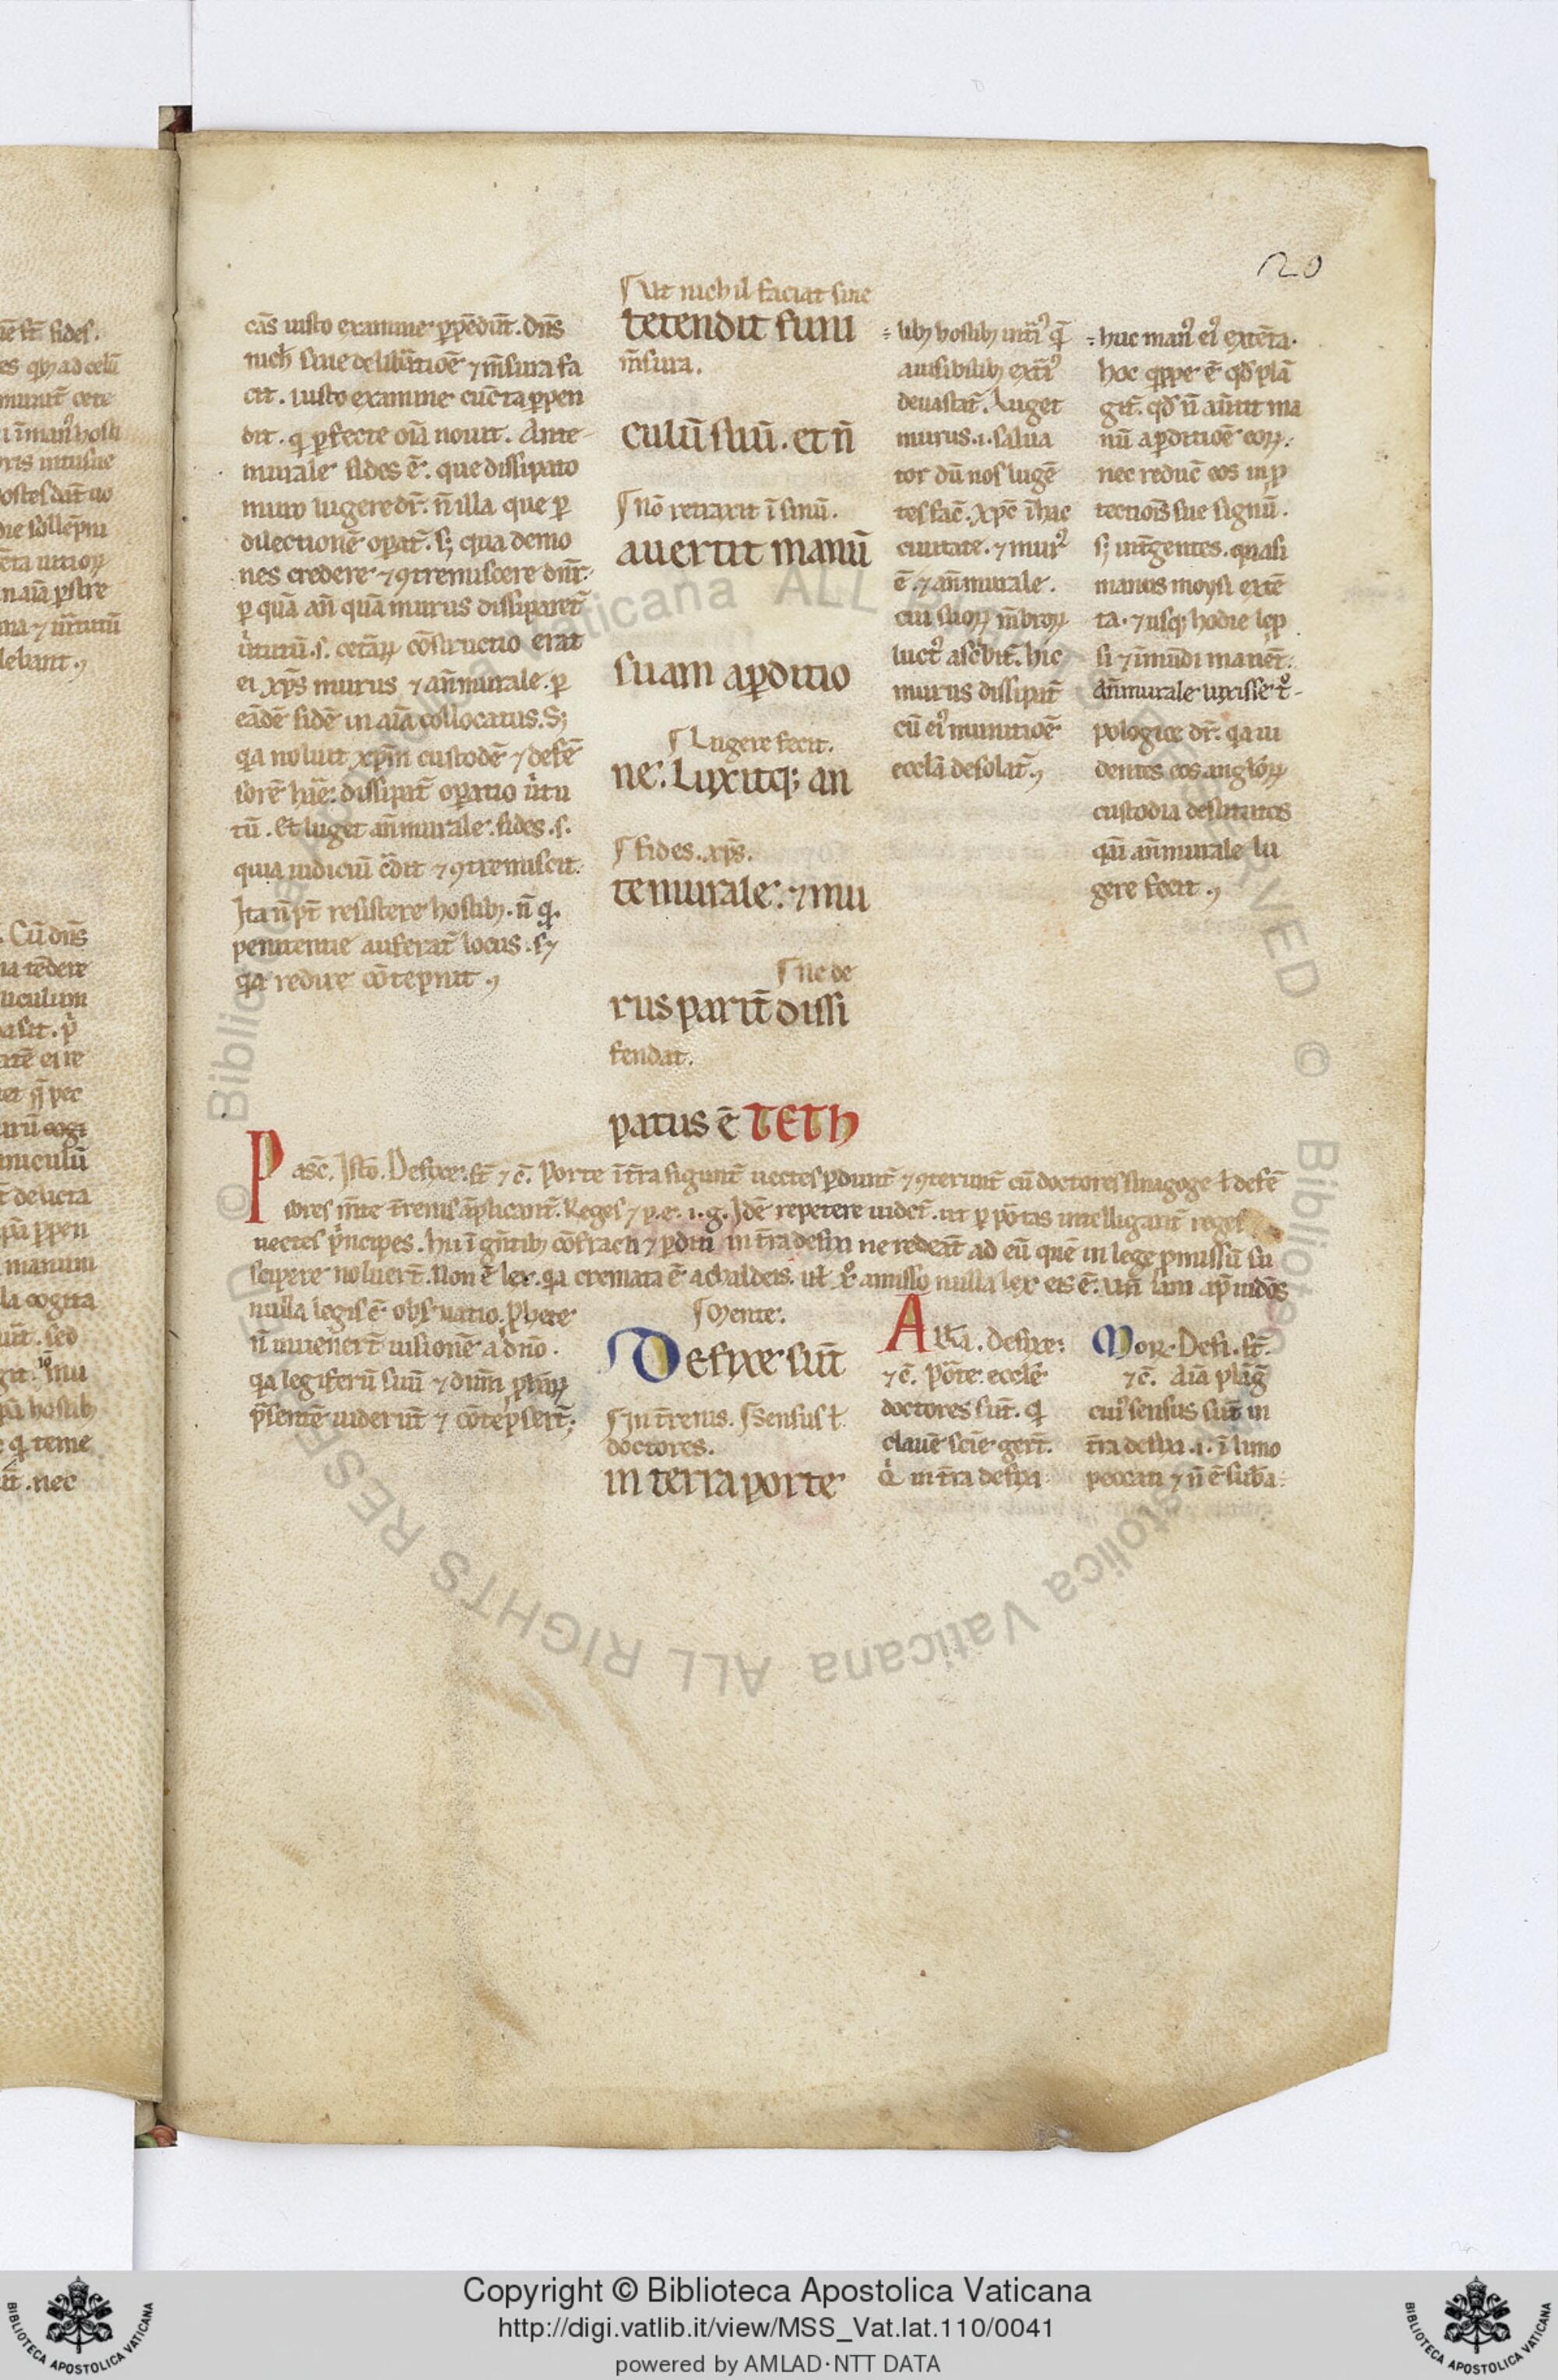 20
cās iusto examine ꝑpēdūt. Dn̄s
nich̄ siue delib̄atiōe ⁊ m̄sura fa
cit. iusto examine cūcta ꝑpen
dit. q̇ ꝑfecte oīa nouit. Ante
murale fides ē. que dissipato
muro lugere dr̄. n̄ illa que ꝑ
dilectionē oꝑat̄. sꝫ qua demo
nes credere ⁊ ꝯtremiscere dn̄r.
ꝑ quā an̄ quā murus dissiparet̄
u̇tutū .s. cetāꝝ cōstructio erat
ei xp̄s murus ⁊ an̄murale. ꝑ
eādē fidē in aīa collocatus. Sꝫ
qa noluit xp̄m custodē ⁊ defē
sorē h̄ue: dissipat̄ oꝑatio u̇tu
tū. Et luget an̄murale. fides .s.
quia iudiciū c̄dit ⁊ ꝯtremiscit.
Ita n̄ pt̄ resistere hostibꝫ. n̄ q̇
penitentie auferat̄ locus. sꝫ
qa redire cōtepnit.
¶ Vt nichil faciat sine
tetendit funi
m̄sura.
culū suū. et n̄
¶ nō retraxit ī sinū.
auertit manū
suam a ꝑditio
¶ Lugere fecit.
ne: Luxitqꝫ an
¶ fides. xp̄s.
temurale: ⁊ mu
¶ ne de
rus parit̄ dissi
fendat.
patus ē TETH
libꝫ hostibꝫ int̄i⁹ q̄
a uisibilibꝫ ext̄i⁹
deuastat̄. Luget
murus .i. salua
tor dū nos lugē
tes fac̄. Xp̄c ī hac
ciuitate. ⁊ mur⁹
ē. ⁊ an̄murale.
cui suoꝝ m̄broꝝ
luct⁹ asc̄bit̄. hic
murus dissipat̄
cū ei⁹ munitiōe
eccl̄a desolat̄.
huc man⁹ ei⁹ extēta.
hoc q̇ppe ē qd̄ plā
git̄. qd̄ n̄ au̇tit ma
nū a ꝑditiōe eoꝝ.
nec reduc̄ eos in ꝓ
tectiōis sue signū.
sꝫ uirgentes. quasi
manus moysi extē
ta. ⁊ usqꝫ hodie lep
si ⁊ īmūdi manēt.
An̄murale luxisse t̊
pologice dr̄. qa ui
dentes eos angloꝝ
custodia destitutos
qͣi an̄murale lu
gere fecit.
Pasc̄. Isto. Defixe: st̄ ⁊ c̄. Porte ī t̄ra figunt̄ uectes ꝑdunt̄ ⁊ ꝯterunt̄ cū doctores sinagoge ł defē
sores m̄te t̄renis āplicant̄. Reges ⁊ p. e. i. g. Idē repetere uidet̄. ut ꝑ portas intelligant̄ reges
uectes ṗncipes. hii ī gn̄tibꝫ cōfracti ⁊ ꝑditi in t̄ra defixi ne redeāt ad eū quē in lege ꝓmissū su
scipere noluert̄. Non ē lex. qa cremata ē a chaldeis. uł xp̊ amisso nulla lex eis ē. Vn̄ iam ap̄ iudeos
nulla legis ē obs̄uatio. Ꝓphete
n̄ inuenert̄ uisionē a dn̄o.
qa legiferū suū ⁊ dn̄m ꝓph̄aꝝ
p̄sentē uiderūt ⁊ cōtepsert̄.
¶ Mente:
Defixe sūt
¶ in t̄renis. ¶ Sensus ł
doctores.
in terra porte
All̄a. Defixe:
⁊ c̄. Porte eccl̄e
doctores sūt. q̇
clauē scīe gert̄.
Q̇ in t̄ra defixi
Mor. Defi. st̄.
⁊ c̄. Aīa plāgit̄
cui⁹ sensus sūt in
t̄ra defixi .i. ī limo
peccati ⁊ n̄ ē sub̄a.
Copyright © Biblioteca Apostolica Vaticana
http://digi.vatlib.it/view/MSS_Vat.lat.110/0041
powered by AMLAD·NTT DATA
BIBLIOTECA APOSTOLICA VATICANA
BIBLIOTECA APOSTOLICA VATICANA